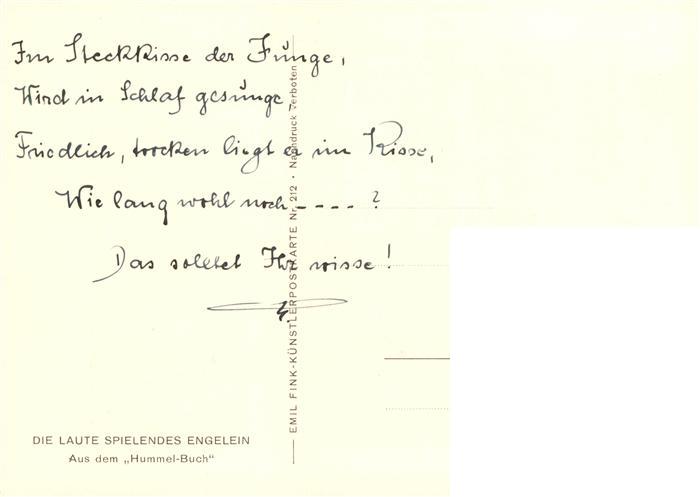 Im Steckkisse der Junge,
Wird in Schlaf gesunge
Friedlich, trocken liegt er im Kisse,
Wie lang wohl noch - - - - ?
Das solltet Ihr wisse!
EMIL FINK-KÜNSTLERPOSTKARTE Nr. 212 · Nachdruck verboten
DIE LAUTE SPIELENDES ENGELEIN
Aus dem „Hummel-Buch"